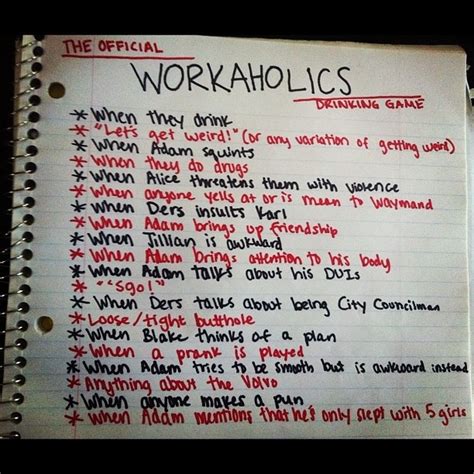 THE OFFICIAL
WORKAHOLICS
DRINKING GAME
* When they drink
* "Let's get weird!" (or any variation of getting weird)
* When Adam squints
* When they do drugs
* When Alice threatens them with violence
* When anyone yells at or is mean to Waymand
* When Ders insults Karl
* When Adam brings up friendship
* When Jillian is awkward
* When Adam brings attention to his body
* When Adam talks about his DUIs
* "'Sgo!"
* When Ders talks about being City Councilman
* Loose/tight butthole
* When Blake thinks of a plan
* When a prank is played
* When Adam tries to be smooth but is awkward instead
* Anything about the Volvo
* When anyone makes a pun
* When Adam mentions that he's only slept with 5 girls